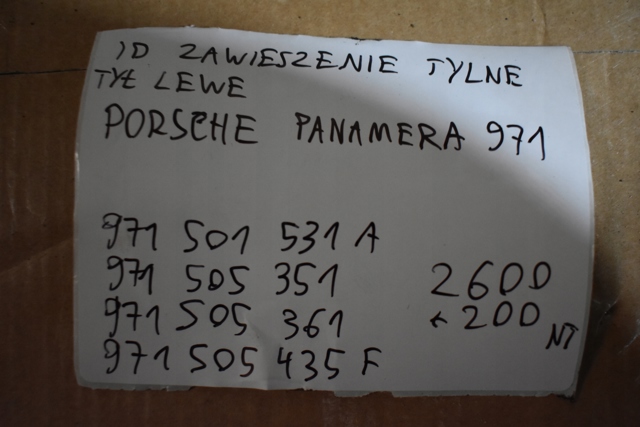 ID ZAWIESZENIE TYLNE
TYŁ LEWE
PORSCHE PANAMERA 971
971 501 531 A
971 505 351 2600
971 505 361 + 200 NT
971 505 435 F